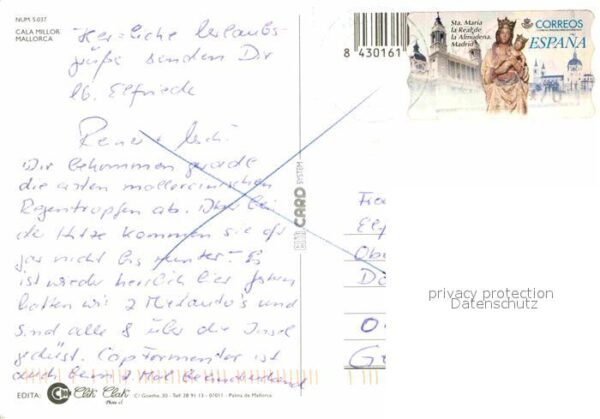 NUM 5.037
CALA MILLOR
MALLORCA
Herzliche Urlaubs-
grüße senden Dir
lb. Elfriede
Wir bekommen gerade
die ersten mallorcinischen
Regentropfen ab. Aber bei
der Hitze kommen sie oft
gar nicht bis runter! Es
ist wieder herrlich hier gestern
hatten wir 2 Mietauto's und
sind alle 8 über die Insel
gedüst. Cap Formentor ist
auch beim 2. Mal beeindruckend
EDITA:
Clik Clak
C/ Goethe, 30 - Telf. 28 91 13 - 07011 - Palma de Mallorca
CARD SYSTEM
8 430161
Sta. María
la Real de
la Almudena.
Madrid
CORREOS
ESPAÑA
70
Elf
Ob
privacy protection
Datenschutz